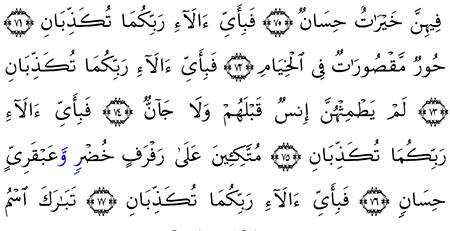 فِيهِنَّ خَيْرَٰتٌ حِسَانٌ ﴿٧٠﴾ فَبِأَىِّ ءَالَآءِ رَبِّكُمَا تُكَذِّبَانِ ﴿٧١﴾
حُورٌ مَّقْصُورَٰتٌ فِى ٱلْخِيَامِ ﴿٧٢﴾ فَبِأَىِّ ءَالَآءِ رَبِّكُمَا تُكَذِّبَانِ
﴿٧٣﴾ لَمْ يَطْمِثْهُنَّ إِنسٌ قَبْلَهُمْ وَلَا جَآنٌّ ﴿٧٤﴾ فَبِأَىِّ ءَالَآءِ
رَبِّكُمَا تُكَذِّبَانِ ﴿٧٥﴾ مُتَّكِـِٔينَ عَلَىٰ رَفْرَفٍ خُضْرٍ وَّعَبْقَرِىٍّ
حِسَانٍ ﴿٧٦﴾ فَبِأَىِّ ءَالَآءِ رَبِّكُمَا تُكَذِّبَانِ ﴿٧٧﴾ تَبَٰرَكَ ٱسْمُ